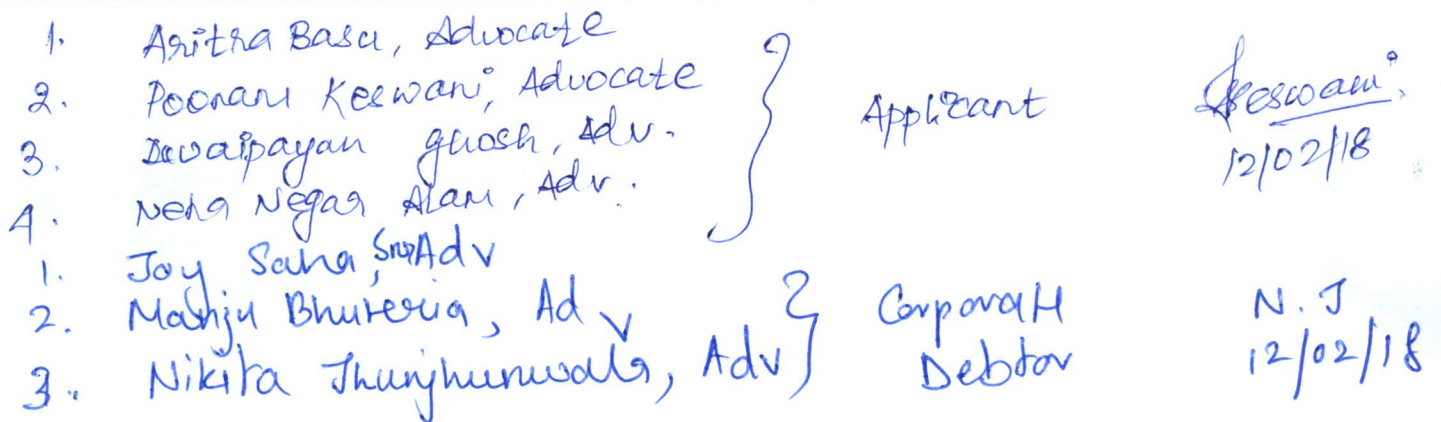 1. Aritra Basu, Advocate
2. Poonam Keswani, Advocate
3. Dwaipayan Ghosh, Adv.
4. Neha Negar Alam, Adv.
Applicant
Keswani
12/02/18
1. Joy Saha, Snr Adv
2. Manju Bhuteria, Adv
3. Nikita Jhunjhunwala, Adv
Corporate
Debtor
N. J
12/02/18